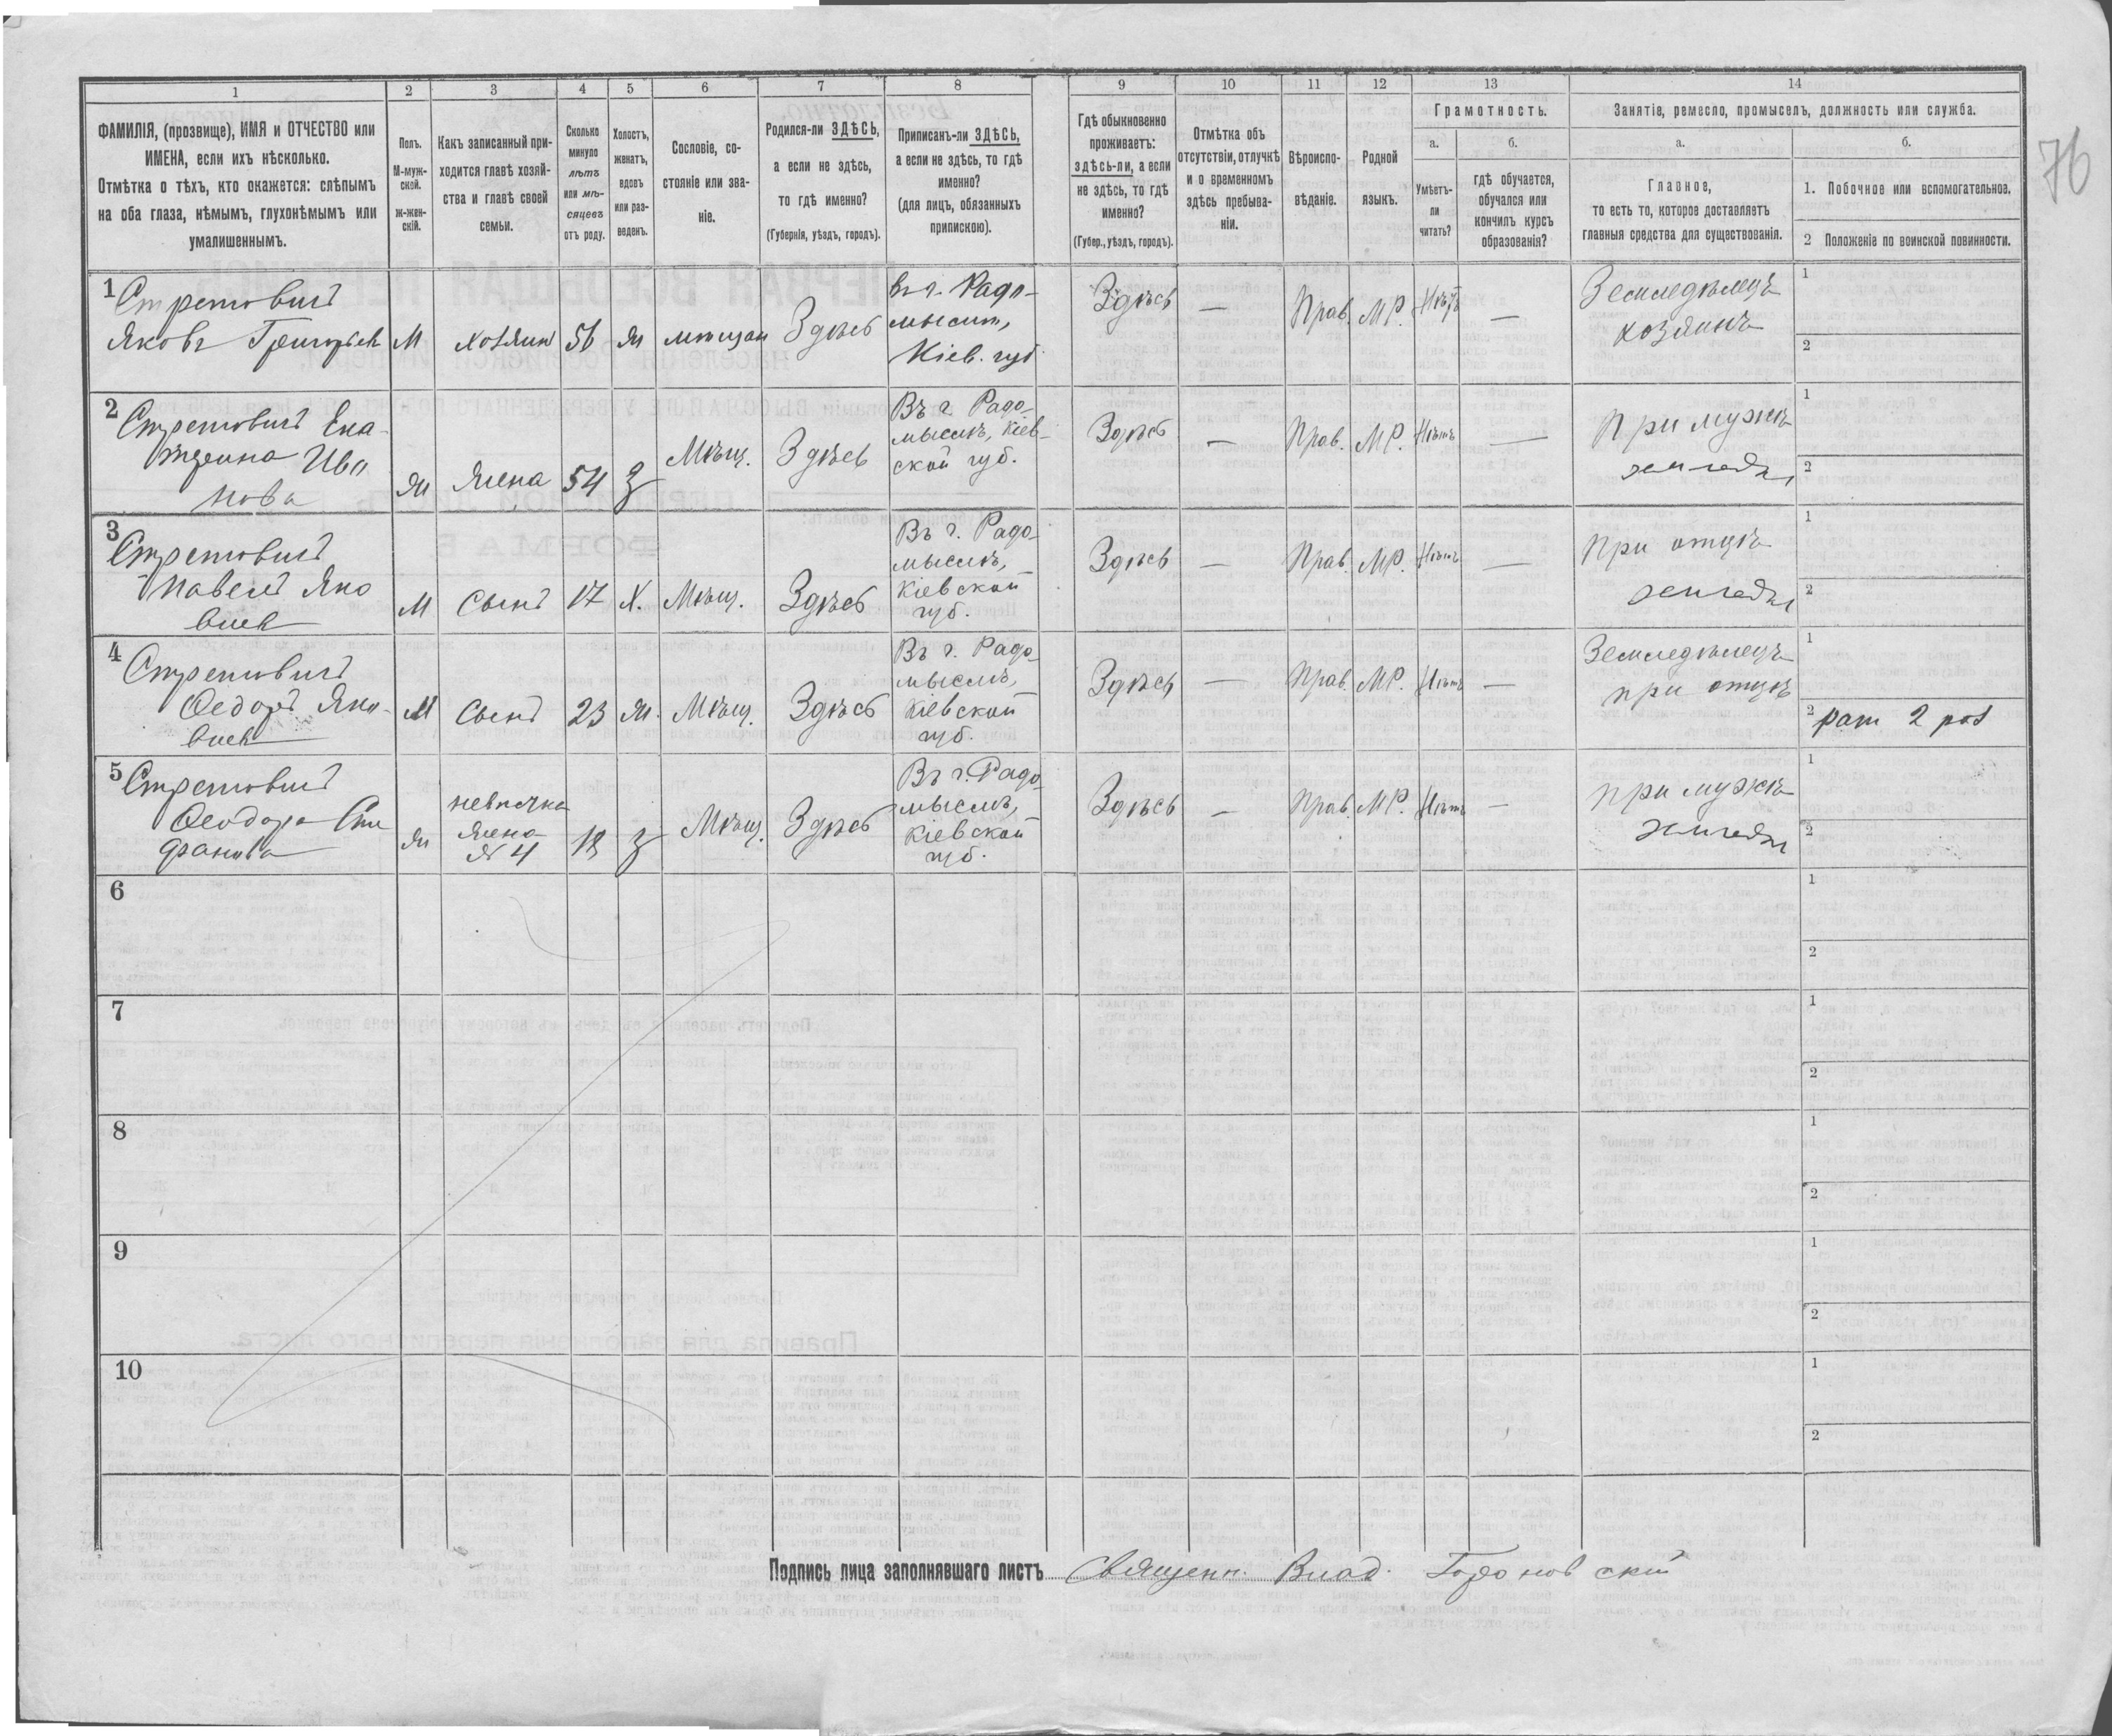 1 2 3 4 5 6 7 8 9 10 11 12 13 14
ФАМИЛІЯ, (прозвище), ИМЯ и ОТЧЕСТВО или
ИМЕНА, если ихъ нѣсколько.
Отмѣтка о тѣхъ, кто окажется: слѣпымъ
на оба глаза, нѣмымъ, глухонѣмымъ или
умалишеннымъ.
Полъ.
М-муж-
ской.
ж-жен-
скій.
Какъ записанный при-
ходится главѣ хозяй-
ства и главѣ своей
семьи.
Сколько
минуло
лѣтъ
или мѣ-
сяцевъ
отъ роду.
Холостъ,
женатъ,
вдовъ
или раз-
веденъ.
Сословіе, со-
стояніе или зва-
ніе.
Родился-ли ЗДѢСЬ,
а если не здѣсь,
то гдѣ именно?
(Губернія, уѣздъ, городъ).
Приписанъ-ли ЗДѢСЬ,
а если не здѣсь, то гдѣ
именно?
(для лицъ, обязанныхъ
припискою).
Гдѣ обыкновенно
проживаетъ:
здѣсь-ли, а если
не здѣсь, то гдѣ
именно?
(Губер., уѣздъ, городъ).
Отмѣтка объ
отсутствіи, отлучкѣ
и о временномъ
здѣсь пребыва-
ніи.
Вѣроиспо-
вѣданіе.
Родной
языкъ.
Грамотность.
а.
Умѣетъ-
ли
читать?
б.
гдѣ обучается,
обучался или
кончилъ курсъ
образованія?
Занятіе, ремесло, промыселъ, должность или служба.
а.
Главное,
то есть то, которое доставляетъ
главныя средства для существованія.
б.
1. Побочное или вспомогательное.
2 Положеніе по воинской повинности.
76
1
Яковъ
М
хозяин
56
ж
мѣщан
Здѣсь
въ г. Радо-
мысл,
Кіев. губ
Здѣсь
—
Прав.
МР.
Нѣтъ
—
Земледѣлецъ
хозяинъ
1
2
2
Ека-
терина Ива
нова
ж
жена
54
З
Мѣщ.
Здѣсь
Въ г. Радо-
мыслѣ, Кіев-
ской губ.
Здѣсь
—
Прав.
МР.
Нѣтъ
—
при мужѣ
1
2
3
Павелъ Яко
влев
М
Сынъ
17
Х.
Мѣщ.
Здѣсь
Въ г. Радо-
мыслѣ,
Кіевской
губ.
Здѣсь
—
Прав.
МР.
Нѣтъ
—
при отцѣ
1
2
4
Ѳедоръ Яко-
влев
М
Сынъ
23
ж.
Мѣщ.
Здѣсь
Въ г. Радо-
мыслѣ,
Кіевской
губ.
Здѣсь
—
Прав.
МР.
Нѣтъ
—
Земледѣлецъ
при отцѣ
1
2 рат 2 раз
5
ж
невѣстка
жена
№ 4
З
Мѣщ.
Здѣсь
Въ г. Радо-
мыслѣ,
Кіевской
губ.
Здѣсь
—
Прав.
МР.
Нѣтъ
—
при мужѣ
1
2
6
1
2
7
1
2
8
1
2
9
1
2
10
1
2
Подпись лица заполнявшаго листъ Священн. Влад.